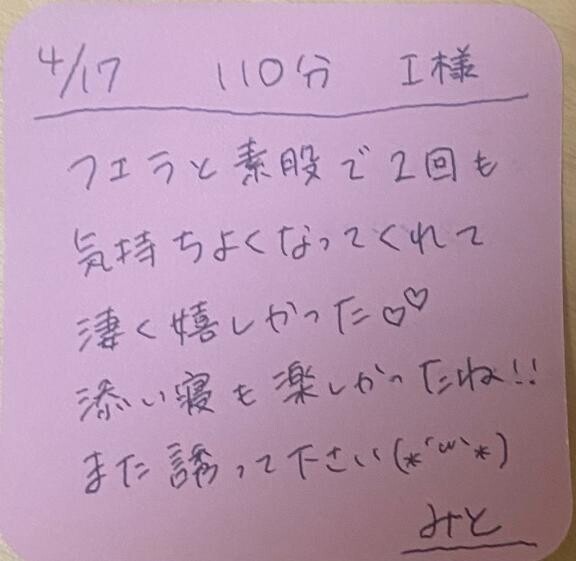 4/17 110分 I様
フェラと素股で2回も
気持ちよくなってくれて
凄く嬉しかった♡♡
添い寝も楽しかったね!!
また誘って下さい(*´ω`*)
みと